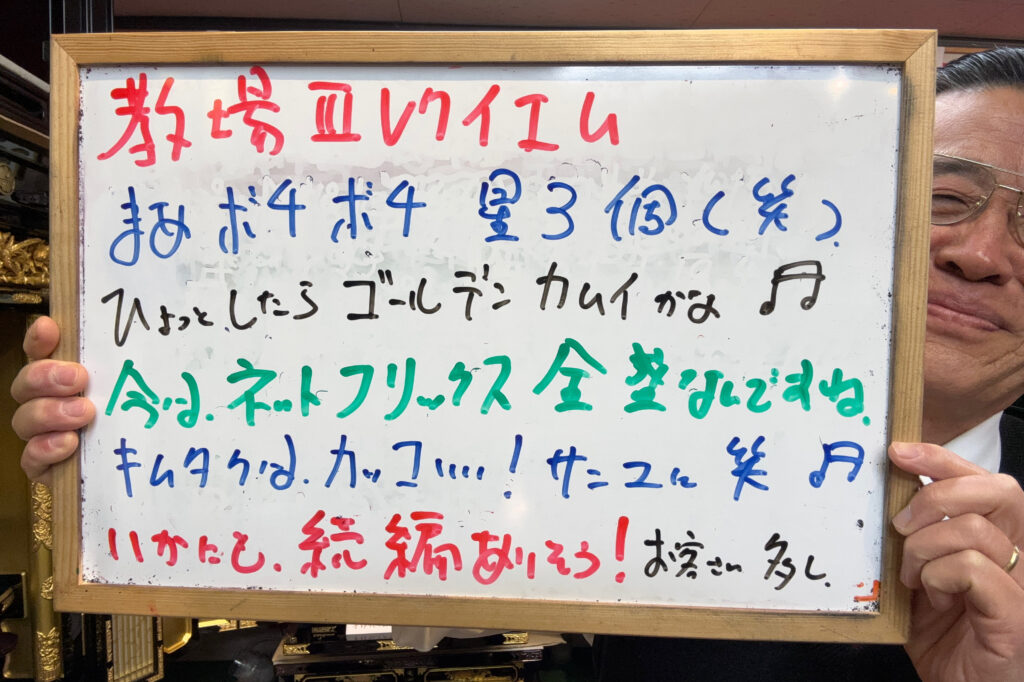 教場 Ⅲ レクイエム
まあ ボチボチ 星3個(笑).
ひょっとしたら ゴールデン カムイかな ♬
今は、ネットフリックス 全盛なんですね.
キムタクは、カッコいい…! サニユに 笑 ♬
いかにも、続編ありそう! お客さい 多し.